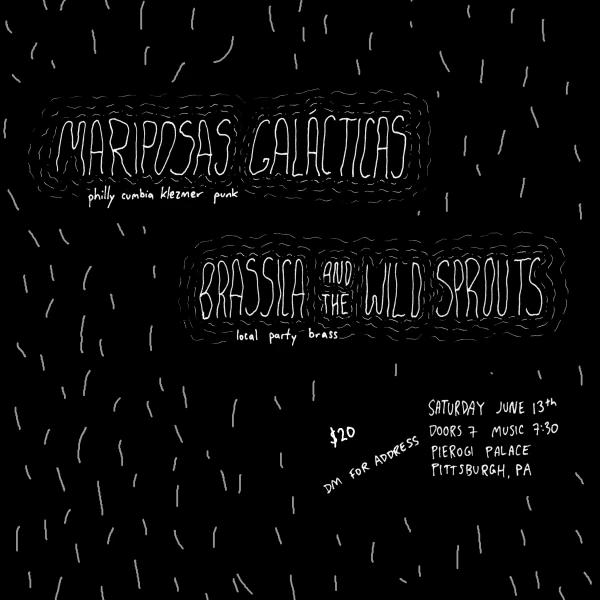 MARIPOSAS GALÁCTICAS
philly cumbia klezmer punk
BRASSICA AND THE WILD SPROUTS
local party brass
$20
DM FOR ADDRESS
SATURDAY JUNE 13th
DOORS 7 MUSIC 7:30
PIEROGI PALACE
PITTSBURGH, PA